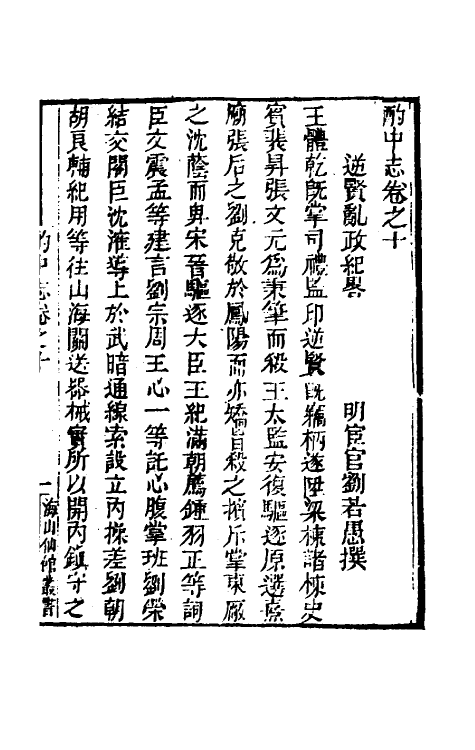 酌中志卷之十
逆賢亂政紀畧
明宦官劉若愚撰
王體乾旣掌司禮監印逆賢旣竊柄遂陞梁棟諸棟史
賓裴昇張文元爲秉筆而殺王太監安復驅逐原選熹
廟張后之劉克敬於鳳陽而亦矯旨殺之擯斥掌東厰
之沈蔭而畀宋晉驅逐大臣王紀滿朝薦鍾羽正等詞
臣文震孟等建言劉宗周王心一等託心腹掌班劉榮
結交閣臣沈㴶導上於武暗通線索設立內操差劉朝
胡良輔紀用等往山海關送器械實所以開內鎮守之
酌中志卷之十
一
海山仙館叢書